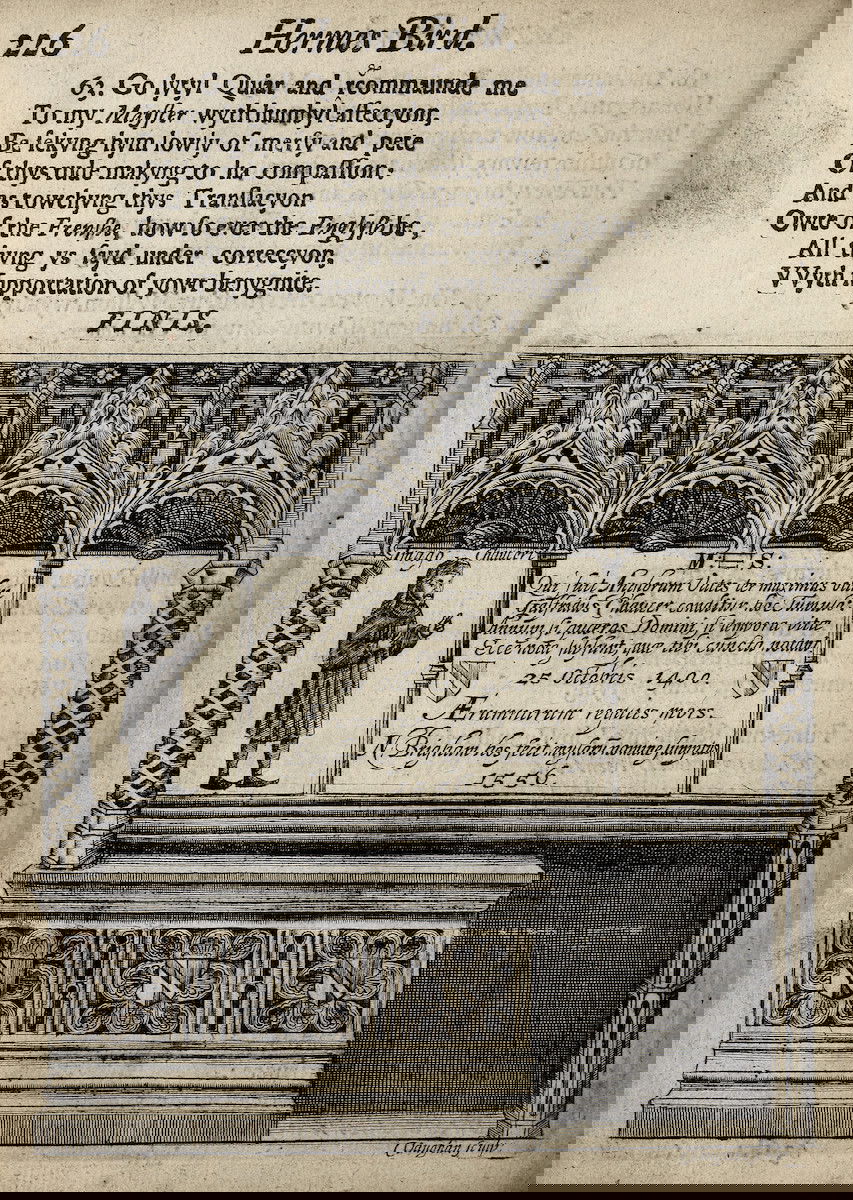 226 Hermes Bird.
63. Go lytyl Quiar and recommaunde me
To my Mayster wyth humbyl affeccyon,
Be sekyng hym lowly of mercy and pete
Of thys rude makyng to ha compassion:
And as towchyng thys Translacyon
Owte of the Frenshe, how so ever the Englyshe,
All thyng ys sayd under correccyon,
Wyth supportation of yowr benygnite.
FINIS.
Imago Chauceri
M. S.
Qui fuit Anglorum Vates ter maximus
Galfridus Chaucer conditur hoc tumulo
Annum si quæras Domini, si tempora vitæ
Ecce notæ subsunt, quæ tibi cuncta notant
25 Octobris 1400.
Ærumnarum requies mors.
N Brigham hos fecit musarum nomine sumptus
1556.